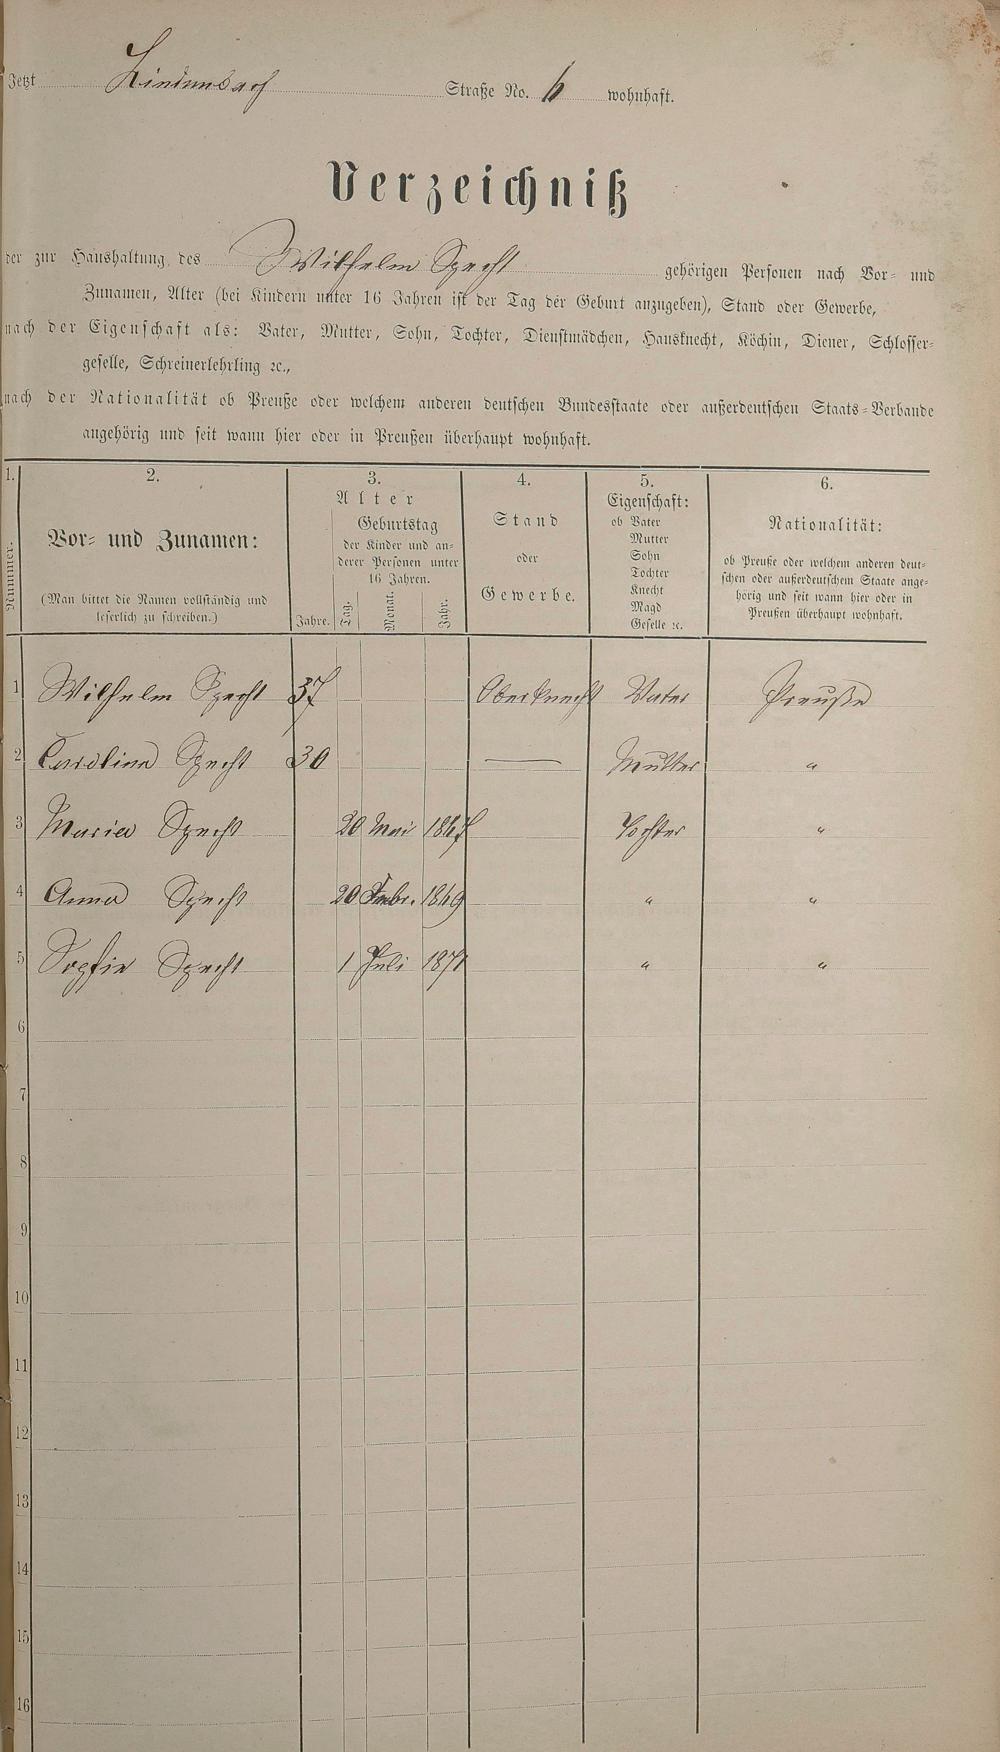 Jetzt Lindenbach Straße No. 6 wohnhaft.
Verzeichniß
der zur Haushaltung des Wilhelm Specht gehörigen Personen nach Vor- und
Zunamen, Alter (bei Kindern unter 16 Jahren ist der Tag der Geburt anzugeben), Stand oder Gewerbe,
nach der Eigenschaft als: Vater, Mutter, Sohn, Tochter, Dienstmädchen, Hausknecht, Köchin, Diener, Schlosser-
geselle, Schreinerlehrling ꝛc.,
nach der Nationalität ob Preuße oder welchem anderen deutschen Bundesstaate oder außerdeutschen Staats-Verbande
angehörig und seit wann hier oder in Preußen überhaupt wohnhaft.
1. 2. 3. 4. 5. 6.
Nummer.
Vor- und Zunamen:
(Man bittet die Namen vollständig und
leserlich zu schreiben.)
Alter
Geburtstag
der Kinder und an-
derer Personen unter
16 Jahren.
Jahre. Tag. Monat. Jahr.
Stand
oder
Gewerbe.
Eigenschaft:
ob Vater
Mutter
Sohn
Tochter
Knecht
Magd
Geselle ꝛc.
Nationalität:
ob Preuße oder welchem anderen deut-
schen oder außerdeutschem Staate ange-
hörig und seit wann hier oder in
Preußen überhaupt wohnhaft.
1 Wilhelm Specht 37 Oberknecht Vater Preuße
2 Caroline Specht 30 — Mutter "
3 Maria Specht 20 Mai 1867 Tochter "
4 Anna Specht 20 1869 " "
5 Sophie Specht 1 Juli 1871 " "
6
7
8
9
10
11
12
13
14
15
16